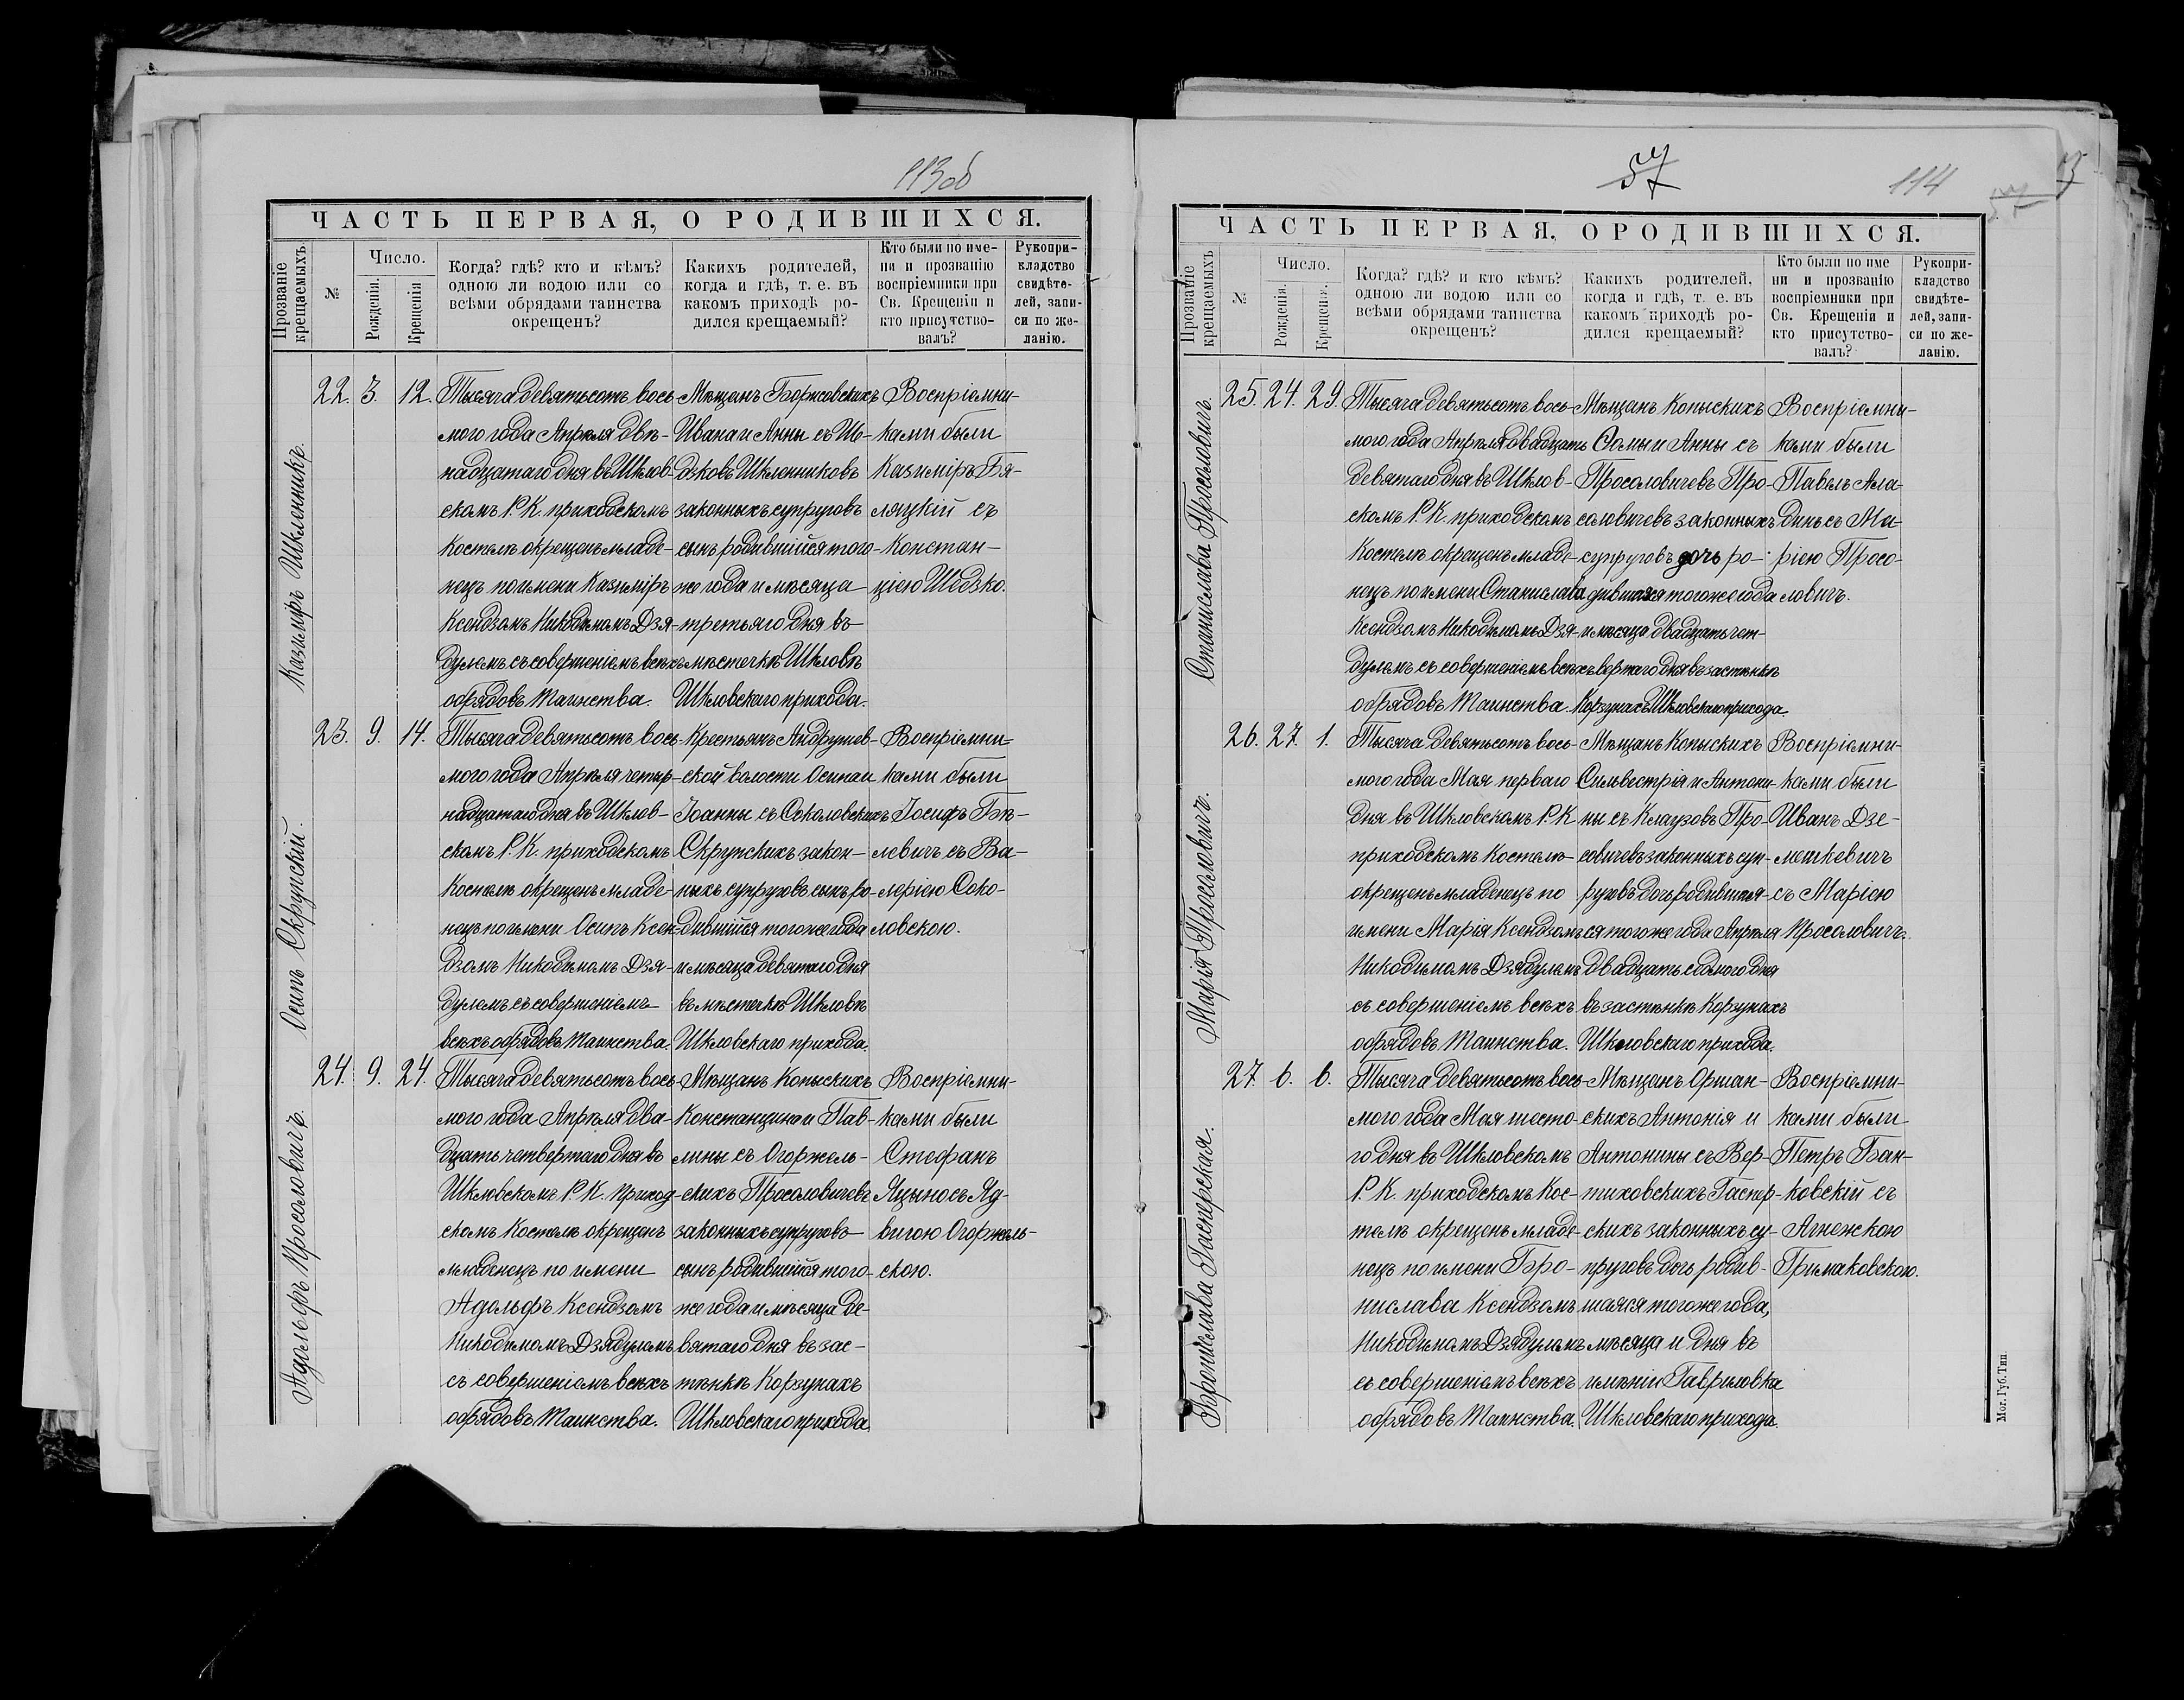 113об
ЧАСТЬ ПЕРВАЯ, О РОДИВШИХСЯ.
Прозваніе крещаемыхъ
№
Число.
Рожденія.
Крещенія
Когда? гдѣ? кто и кѣмъ?
одною ли водою или со
всѣми обрядами таинства
окрещенъ?
Какихъ родителей,
когда и гдѣ, т. е. въ
какомъ приходѣ ро-
дился крещаемый?
Кто были по име-
ни и прозванію
воспріемники при
Св. Крещеніи и
кто присутство-
валъ?
Рукопри-
кладство
свидѣте-
лей, запи-
си по же-
ланію.
Казиміръ Шкленникъ.
22. 3. 12.
Тысяча девятьсотъ вось-
мого года Апрѣля двѣ-
надцатаго дня въ Шклов-
скомъ Р. К. приходскомъ
Костелѣ окрещенъ младе-
нецъ по имени Казиміръ
Ксендзомъ Никодимомъ Дзя-
дулемъ съ совершеніемъ всѣхъ
обрядовъ Таинства.
Мѣщанъ Борисовскихъ
Ивана и Анны съ Ше-
дзковъ Шкленниковъ
законныхъ супруговъ
сынъ родившійся того-
же года и мѣсяца
третьяго дня въ
мѣстечкѣ Шкловѣ
Шкловскаго прихода.
Воспріемни-
ками были
Казиміръ Бя-
ляцкій съ
Констан-
ціею Шедзко.
Осипъ Скрупскій.
23. 9. 14.
Тысяча девятьсотъ вось-
мого года Апрѣля четыр-
надцатаго дня въ Шклов-
скомъ Р. К. приходскомъ
Костелѣ окрещенъ младе-
нецъ по имени Осипъ Ксен-
дзомъ Никодимомъ Дзя-
дулемъ съ совершеніемъ
всѣхъ обрядовъ Таинства.
Крестьянъ Андрушев-
ской волости Осипа и
Іоанны съ Соколовскихъ
Скрупскихъ закон-
ныхъ супруговъ сынъ ро-
дившійся того же года
и мѣсяца девятаго дня
въ мѣстечкѣ Шкловѣ
Шкловскаго прихода.
Воспріемни-
ками были
Іосифъ Бѣ-
левичъ съ Ва-
леріею Соко-
ловскою.
Адольфъ Просоловичъ.
24. 9. 24.
Тысяча девятьсотъ вось-
мого года Апрѣля два-
дцать четвертаго дня въ
Шкловскомъ Р. К. приход-
скомъ Костелѣ окрещенъ
младенецъ по имени
Адольфъ Ксендзомъ
Никодимомъ Дзядулемъ
съ совершеніемъ всѣхъ
обрядовъ Таинства.
Мѣщанъ Копыскихъ
Константина и Пав-
лины съ Огоржель-
скихъ Просоловичевъ
законныхъ супруговъ
сынъ родившійся того-
же года и мѣсяца де-
вятаго дня въ зас-
тѣнкѣ Корзунахъ
Шкловскаго прихода.
Воспріемни-
ками были
Стефанъ
Яцына съ Яд-
вигою Огоржель-
скою.
57
114
ЧАСТЬ ПЕРВАЯ, О РОДИВШИХСЯ.
Прозваніе крещаемыхъ
№
Число.
Рожденія.
Крещенія.
Когда? гдѣ? и кто кѣмъ?
одною ли водою или со
всѣми обрядами таинства
окрещенъ?
Какихъ родителей,
когда и гдѣ, т. е. въ
какомъ приходѣ ро-
дился крещаемый?
Кто были по име
ни и прозванію
воспріемники при
Св. Крещеніи и
кто присутство-
валъ?
Рукопри-
кладство
свидѣте-
лей, запи-
си по же-
ланію.
Станислава Просоловичъ.
25. 24. 29.
Тысяча девятьсотъ вось-
мого года Апрѣля двадцать
девятаго дня въ Шклов-
скомъ Р. К. приходскомъ
Костелѣ окрещенъ младе-
нецъ по имени Станислава
Ксендзомъ Никодимомъ Дзя-
дулемъ съ совершеніемъ всѣхъ
обрядовъ Таинства.
Мѣщанъ Копыскихъ
Ѳомы и Анны съ
Просоловичевъ Про-
соловичевъ законныхъ
супруговъ дочь ро-
дившаяся того же года
и мѣсяца двадцать чет-
вертаго дня въ застѣнкѣ
Корзунахъ Шкловскаго прихода.
Воспріемни-
ками были
Павелъ Ала-
динъ съ Ма-
ріею Просо-
ловичъ.
Марія Просоловичъ.
26. 27. 1.
Тысяча девятьсотъ вось-
мого года Мая перваго
дня въ Шкловскомъ Р. К
приходскомъ Костелѣ
окрещенъ младенецъ по
имени Марія Ксендзомъ
Никодимомъ Дзядулемъ
съ совершеніемъ всѣхъ
обрядовъ Таинства.
Мѣщанъ Копыскихъ
Сильвестрія и Антони-
ны съ Клаузовъ Про-
совичевъ законныхъ суп-
руговъ дочь родившая-
ся того же года Апрѣля
двадцать седмого дня
въ застѣнкѣ Корзунахъ
Шкловскаго прихода.
Воспріемни-
ками были
Иванъ Дзе-
мешкевичъ
съ Маріею
Просоловичъ.
Бронислава Гасперская.
27. 6. 6.
Тысяча девятьсотъ вось-
мого года Мая шесто-
го дня въ Шкловскомъ
Р. К. приходскомъ Кос-
телѣ окрещенъ младе-
нецъ по имени Бро-
нислава Ксендзомъ
Никодимомъ Дзядулемъ
съ совершеніемъ всѣхъ
обрядовъ Таинства.
Мѣщанъ Оршан-
скихъ Антонія и
Антонины съ Вер-
тиховскихъ Гаспер-
скихъ законныхъ су-
пруговъ дочь родив-
шаяся того же года,
мѣсяца и дня въ
имѣніи Гавриловка
Шкловскаго прихода.
Воспріемни-
ками были
Петръ Бан-
ковскій съ
Агнежкою
Гримаковскою.
Мог. Губ. Тип.